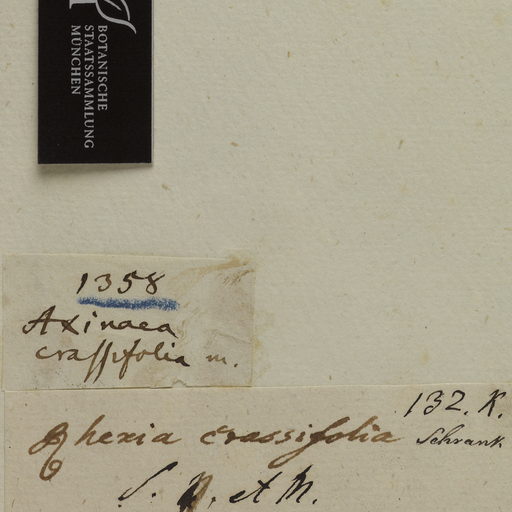 BOTANISCHE
STAATSSAMMLUNG
MÜNCHEN
1358
Axinaea
crassifolia m.
132. K.
Rhexia crassifolia Schrank
S. P. et M.